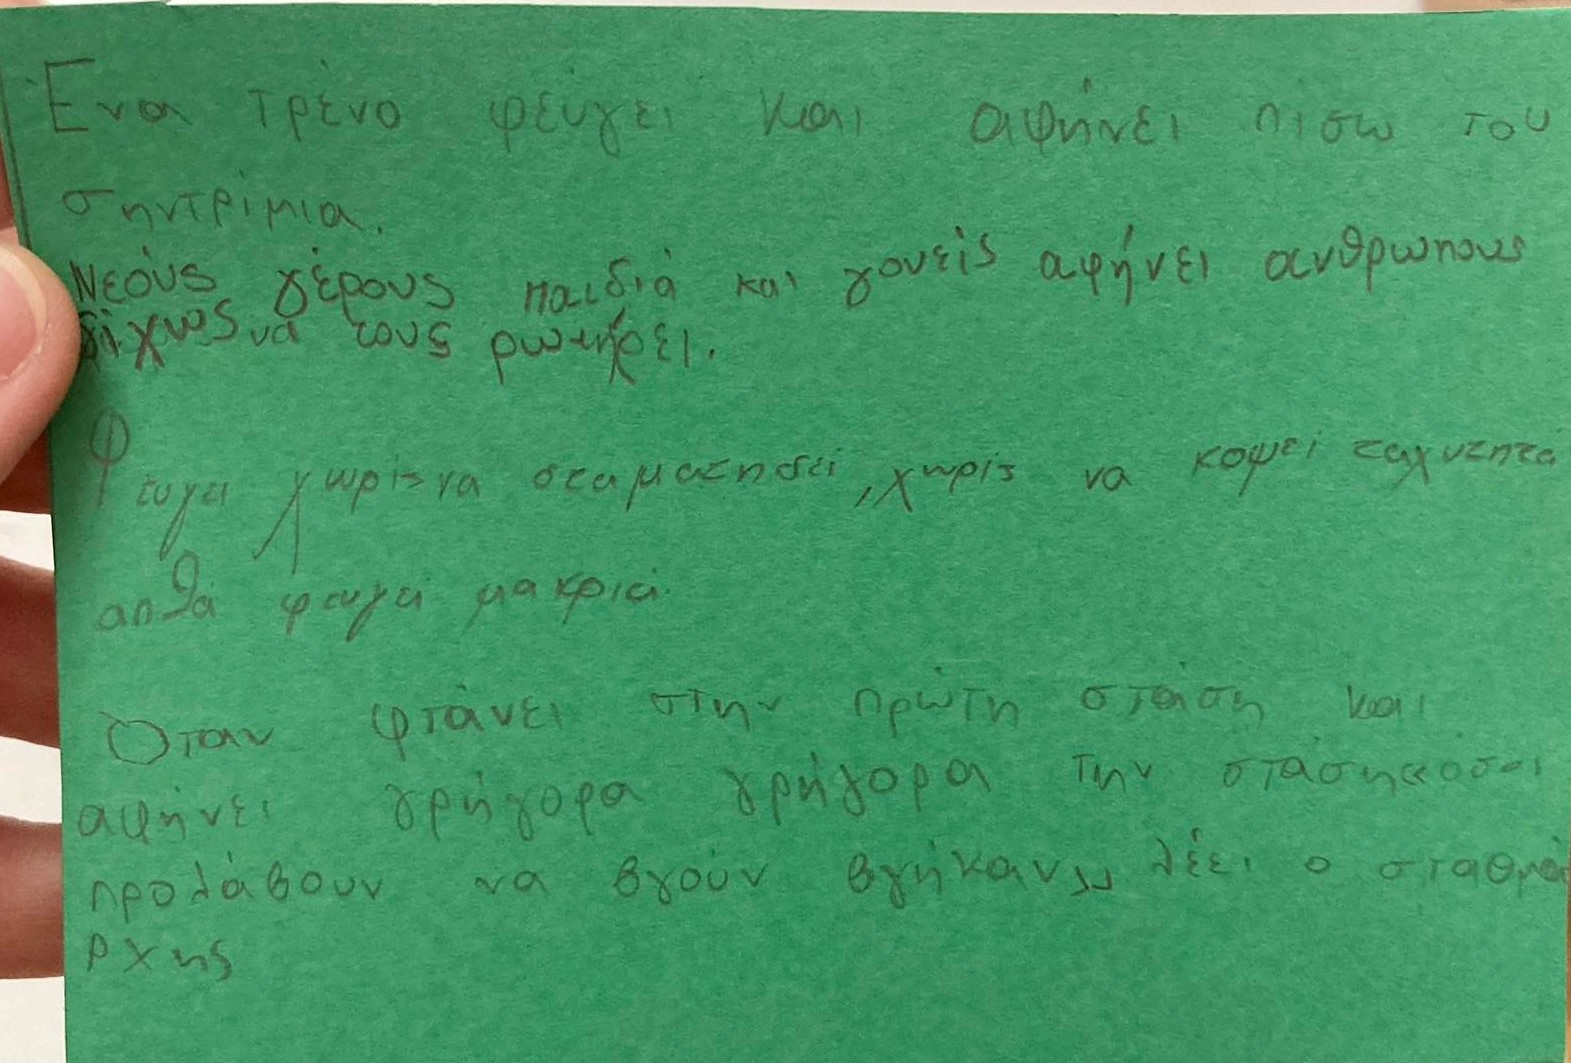 Ένα τρένο φεύγει και αφήνει πισω του
σηντρίμια.
Νεόυς γέρους παιδιά και γονείς αφήνει ανθρωπους
δίχως να τους ρωτήξει.
Φευγει χωρίς να σταματησει, χωρίς να κοψει ταχυτητα
απλά φευγει μακριά.
Όταν φτάνει στην πρώτη στάση και
αφήνει γρήγορα γρήγορα την στάση «οσοι
προλάβουν να βγούν βγήκαν» λέει ο σταθμά
ρχης